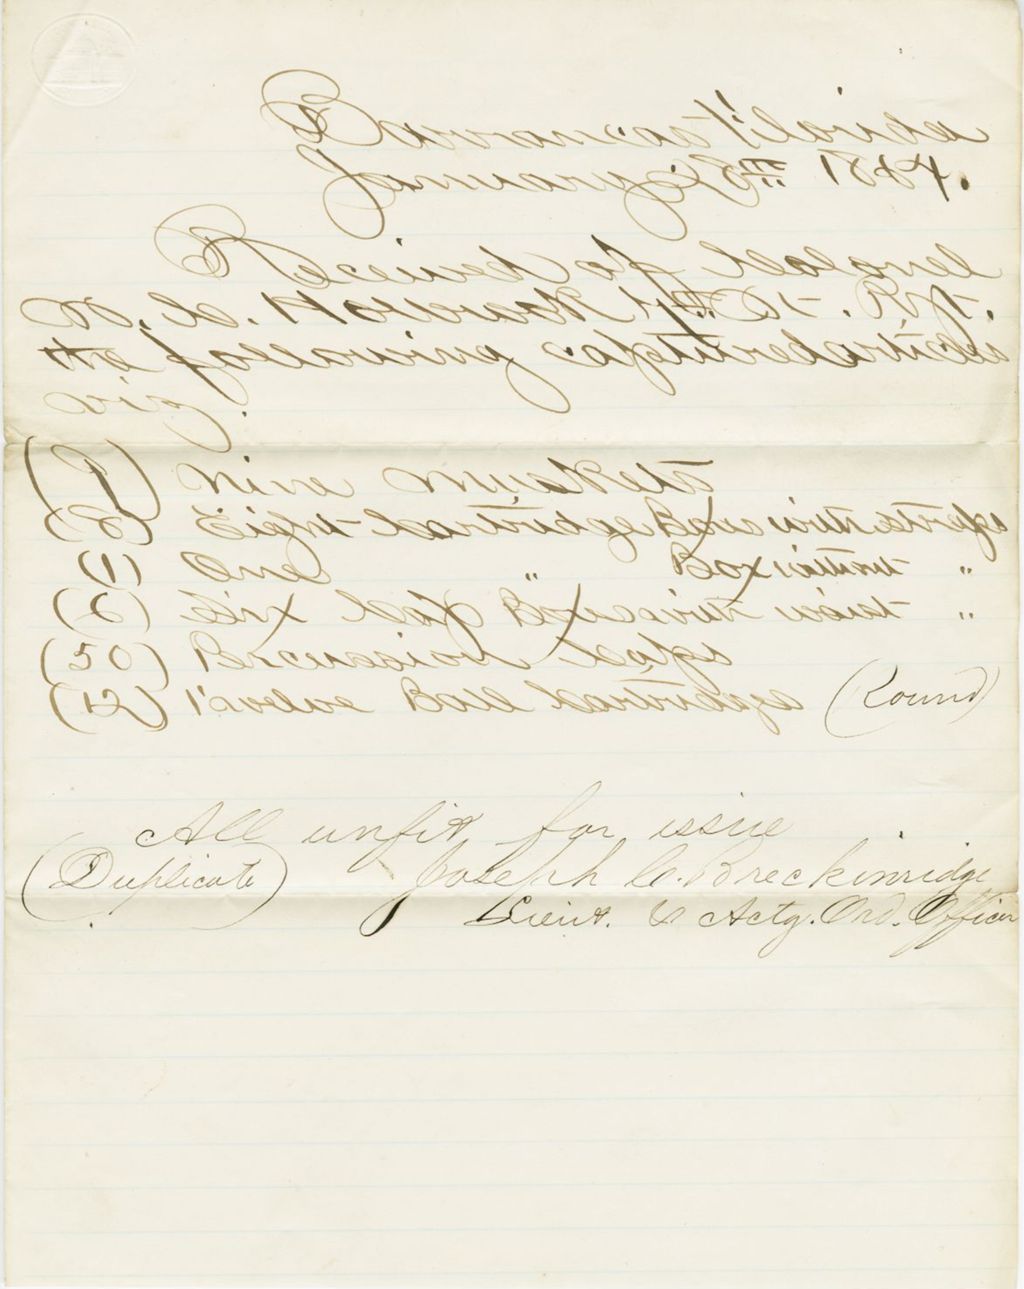 Barrancas Florida
January 8th 1864.
Received of Colonel
W. C. Holbrook 7th Vt. Rgt.
the following captured articles
viz.
(9) Nine Muskets
(8) Eight Cartridge Boxes with straps
(1) One " Box without "
(6) Six Cap Boxes without waist "
(50) Percussion Caps
(12) Twelve Ball Cartridges (Round)
All unfit for issue
(Duplicate) Joseph C. Breckinridge
Lieut. & Actg. Ord. Officer